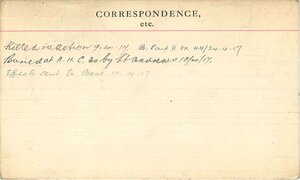 CORRESPONDENCE,
etc.
Killed in action 9.4.17 B. Part II Or.
Buried at A.11.C. by St Andrews 10/4/17.
Effects sent to Base. 14.4.17